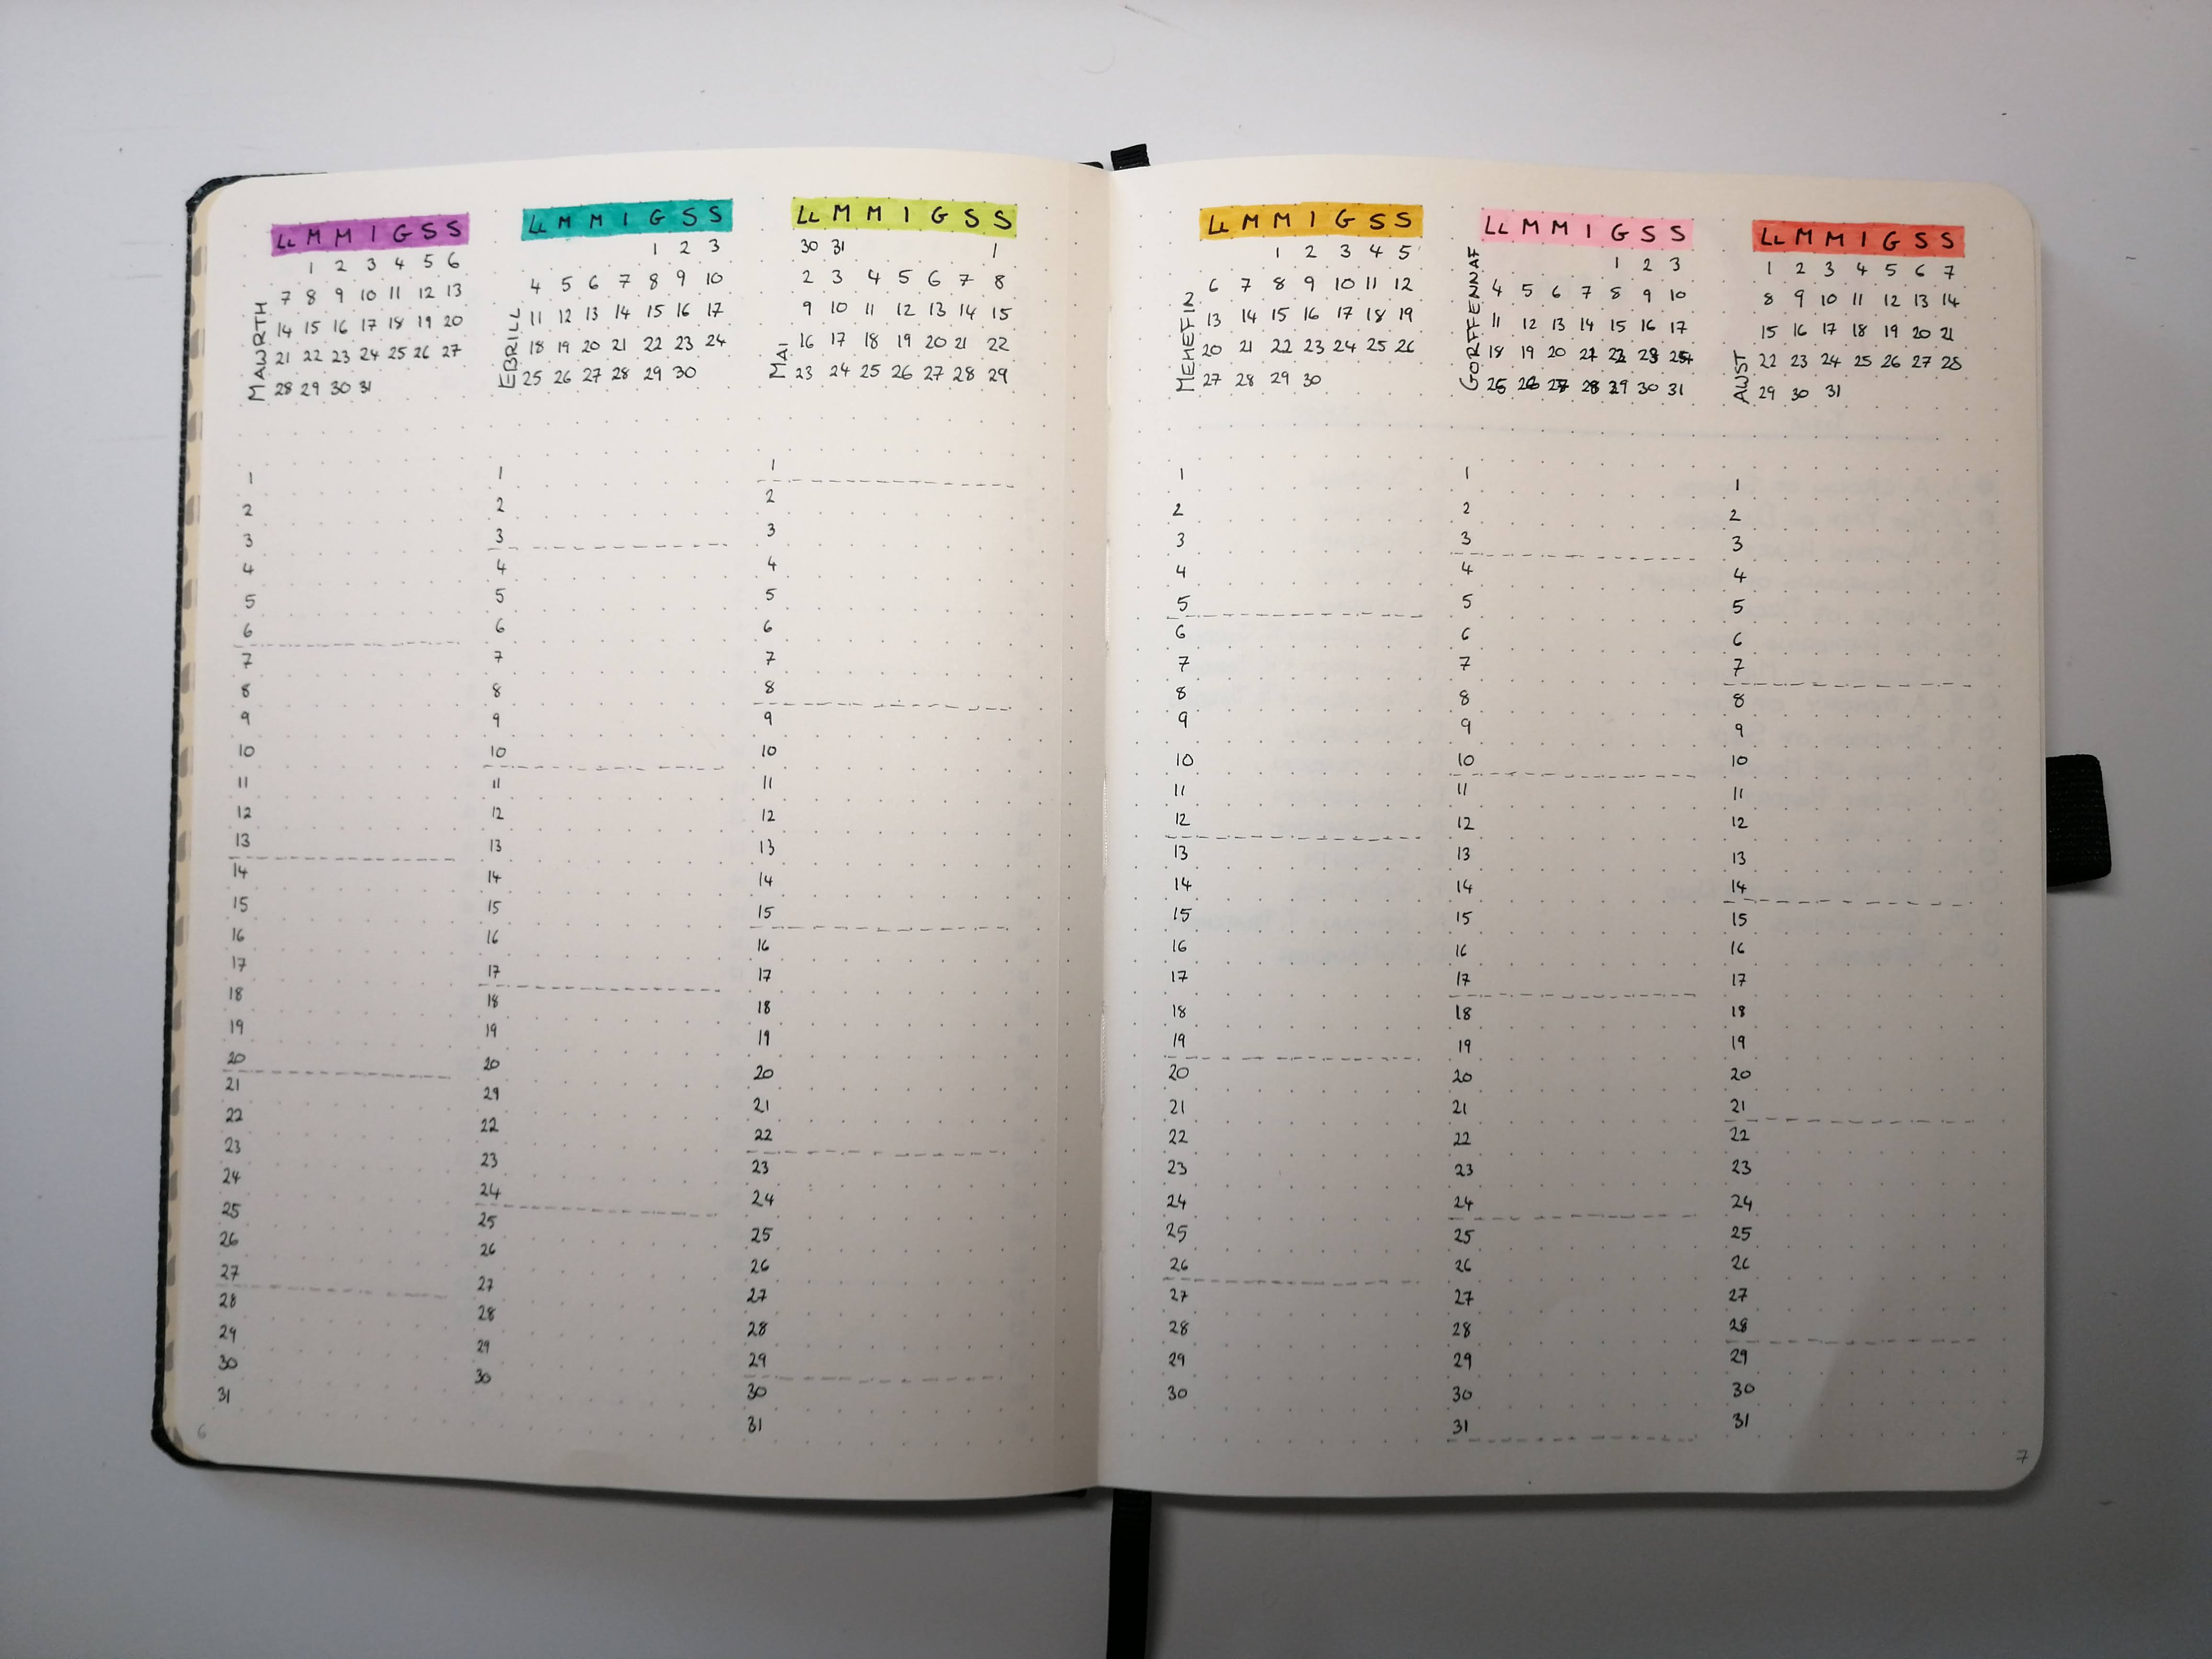 MAWRTH
LL M M I G S S
1 2 3 4 5 6
7 8 9 10 11 12 13
14 15 16 17 18 19 20
21 22 23 24 25 26 27
28 29 30 31
EBRILL
LL M M I G S S
1 2 3
4 5 6 7 8 9 10
11 12 13 14 15 16 17
18 19 20 21 22 23 24
25 26 27 28 29 30
MAI
LL M M I G S S
30 31 1
2 3 4 5 6 7 8
9 10 11 12 13 14 15
16 17 18 19 20 21 22
23 24 25 26 27 28 29
1
2
3
4
5
6
7
8
9
10
11
12
13
14
15
16
17
18
19
20
21
22
23
24
25
26
27
28
29
30
31
1
2
3
4
5
6
7
8
9
10
11
12
13
14
15
16
17
18
19
20
29
22
23
24
25
26
27
28
29
30
1
2
3
4
5
6
7
8
9
10
11
12
13
14
15
16
17
18
19
20
21
22
23
24
25
26
27
28
29
30
31
6
MEHEFIN
LL M M I G S S
1 2 3 4 5
6 7 8 9 10 11 12
13 14 15 16 17 18 19
20 21 22 23 24 25 26
27 28 29 30
GORFFENNAF
LL M M I G S S
1 2 3
4 5 6 7 8 9 10
11 12 13 14 15 16 17
18 19 20 21 22 23 24
25 26 27 28 29 30 31
AWST
LL M M I G S S
1 2 3 4 5 6 7
8 9 10 11 12 13 14
15 16 17 18 19 20 21
22 23 24 25 26 27 28
29 30 31
1
2
3
4
5
6
7
8
9
10
11
12
13
14
15
16
17
18
19
20
21
22
23
24
25
26
27
28
29
30
1
2
3
4
5
6
7
8
9
10
11
12
13
14
15
16
17
18
19
20
21
22
23
24
25
26
27
28
29
30
31
1
2
3
4
5
6
7
8
9
10
11
12
13
14
15
16
17
18
19
20
21
22
23
24
25
26
27
28
29
30
31
7